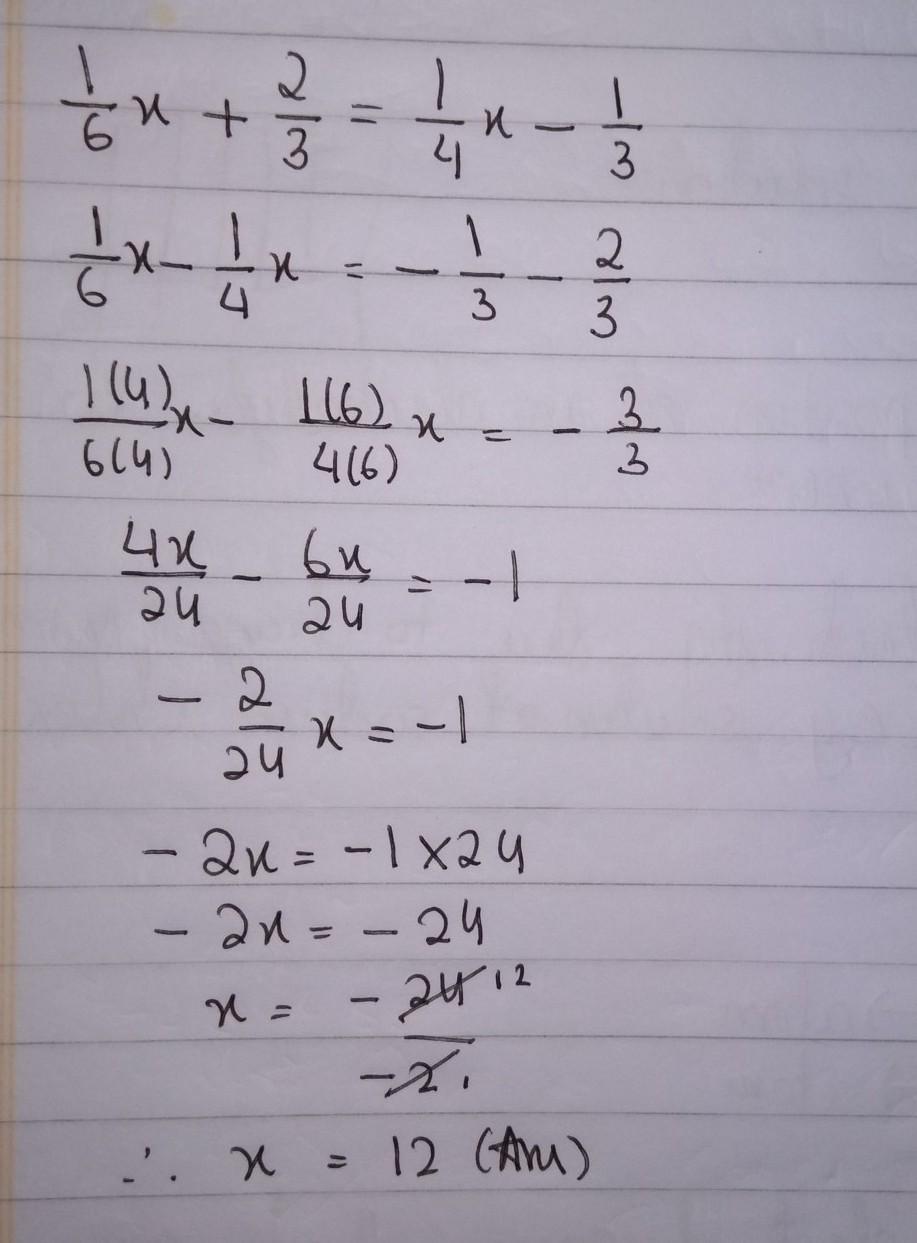 1/6 x + 2/3 = 1/4 x - 1/3
1/6 x - 1/4 x = - 1/3 - 2/3
1(4)/6(4) x - 1(6)/4(6) x = - 3/3
4x/24 - 6x/24 = -1
- 2/24 x = -1
- 2x = -1 × 24
- 2x = - 24
x = - 24 12
/ -2 1
∴ x = 12 (Ans)